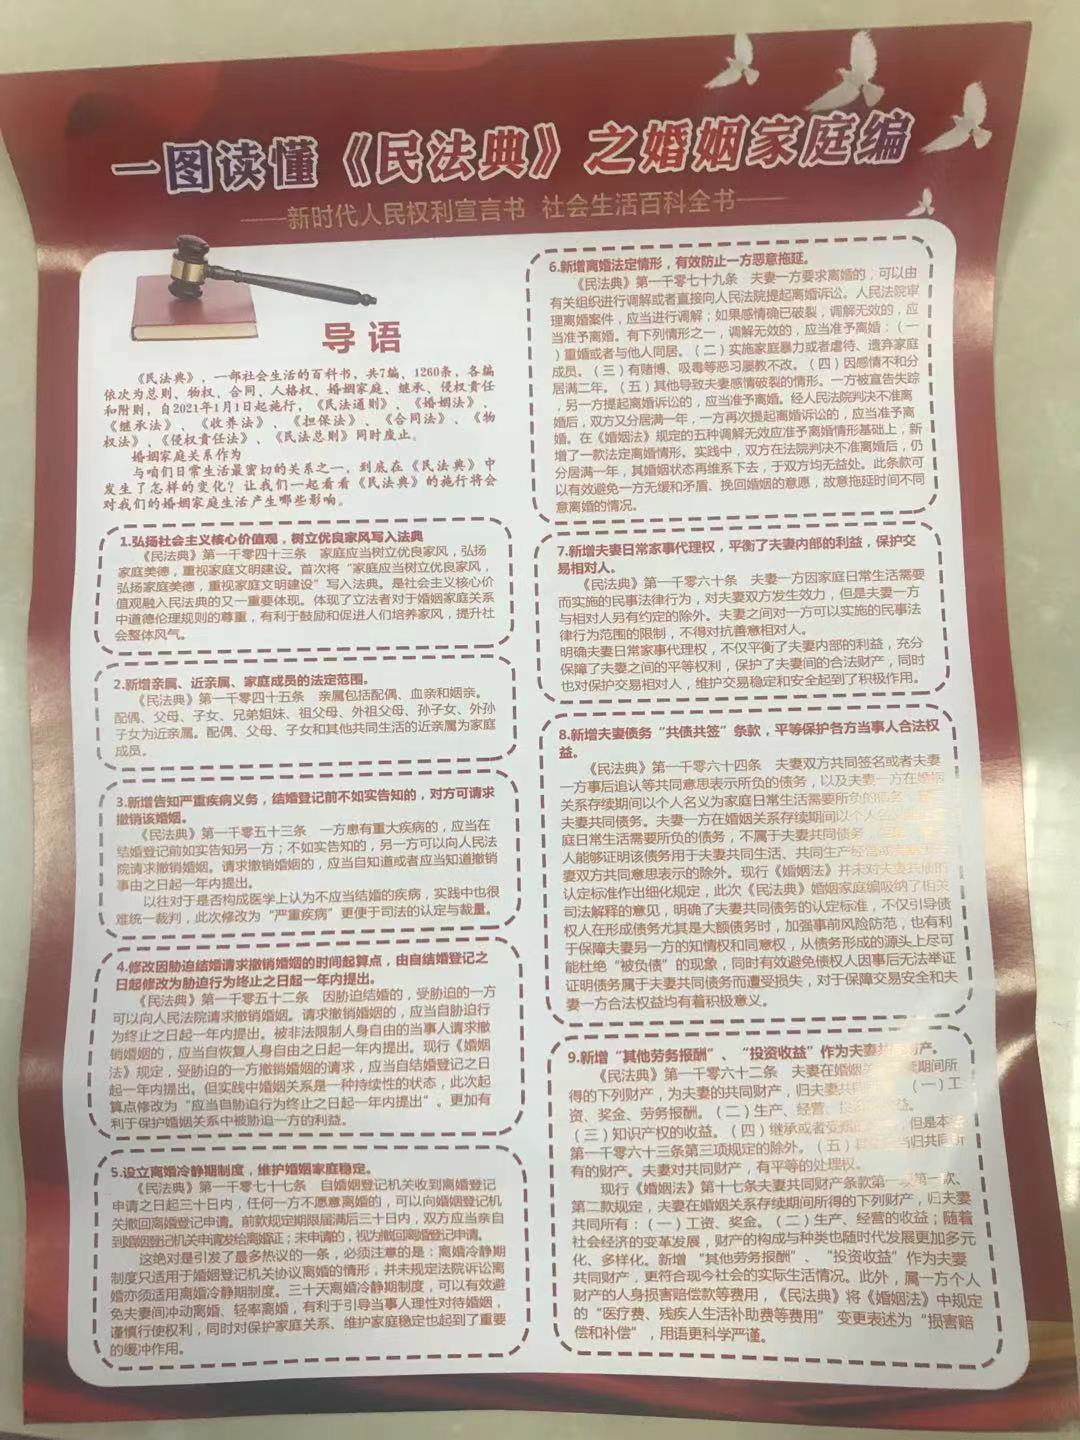 一图读懂《民法典》之婚姻家庭编
——新时代人民权利宣言书 社会生活百科全书——
导语
《民法典》，一部社会生活的百科书，共7编，1260条，各编
依次为总则、物权、合同、人格权、婚姻家庭、继承、侵权责任
和附则，自2021年1月1日起施行，《民法通则》、《婚姻法》、
《继承法》、《收养法》、《担保法》、《合同法》、《物
权法》、《侵权责任法》、《民法总则》同时废止。
婚姻家庭关系作为
与咱们日常生活最密切的关系之一，到底在《民法典》中
发生了怎样的变化？让我们一起看看《民法典》的施行将会
对我们的婚姻家庭生活产生哪些影响。
1.弘扬社会主义核心价值观，树立优良家风写入法典
《民法典》第一千零四十三条 家庭应当树立优良家风，弘扬
家庭美德，重视家庭文明建设。首次将“家庭应当树立优良家风，
弘扬家庭美德，重视家庭文明建设”写入法典。是社会主义核心价
值观融入民法典的又一重要体现。体现了立法者对于婚姻家庭关系
中道德伦理规则的尊重，有利于鼓励和促进人们培养家风，提升社
会整体风气。
2.新增亲属、近亲属、家庭成员的法定范围。
《民法典》第一千零四十五条 亲属包括配偶、血亲和姻亲。
配偶、父母、子女、兄弟姐妹、祖父母、外祖父母、孙子女、外孙
子女为近亲属。配偶、父母、子女和其他共同生活的近亲属为家庭
成员。
3.新增告知严重疾病义务，结婚登记前不如实告知的，对方可请求
撤销该婚姻。
《民法典》第一千零五十三条 一方患有重大疾病的，应当在
结婚登记前如实告知另一方；不如实告知的，另一方可以向人民法
院请求撤销婚姻。请求撤销婚姻的，应当自知道或者应当知道撤销
事由之日起一年内提出。
以往对于是否构成医学上认为不应当结婚的疾病，实践中也很
难统一裁判，此次修改为“严重疾病”更便于司法的认定与裁量。
4.修改因胁迫结婚请求撤销婚姻的时间起算点，由自结婚登记之
日起修改为胁迫行为终止之日起一年内提出。
《民法典》第一千零五十二条 因胁迫结婚的，受胁迫的一方
可以向人民法院请求撤销婚姻。请求撤销婚姻的，应当自胁迫行
为终止之日起一年内提出。被非法限制人身自由的当事人请求撤
销婚姻的，应当自恢复人身自由之日起一年内提出。现行《婚姻
法》规定，受胁迫的一方撤销婚姻的请求，应当自结婚登记之日
起一年内提出。但实践中婚姻关系是一种持续性的状态，此次起
算点修改为“应当自胁迫行为终止之日起一年内提出”。更加有
利于保护婚姻关系中被胁迫一方的利益。
5.设立离婚冷静期制度，维护婚姻家庭稳定。
《民法典》第一千零七十七条 自婚姻登记机关收到离婚登记
申请之日起三十日内，任何一方不愿意离婚的，可以向婚姻登记机
关撤回离婚登记申请。前款规定期限届满后三十日内，双方应当亲自
到婚姻登记机关申请发给离婚证；未申请的，视为撤回离婚登记申请。
这绝对是引发了最多热议的一条，必须注意的是：离婚冷静期
制度只适用于婚姻登记机关协议离婚的情形，并未规定法院诉讼离
婚亦须适用离婚冷静期制度。三十天离婚冷静期制度，可以有效避
免夫妻间冲动离婚、轻率离婚，有利于引导当事人理性对待婚姻，
谨慎行使权利，同时对保护家庭关系、维护家庭稳定也起到了重要
的缓冲作用。
6.新增离婚法定情形，有效防止一方恶意拖延。
《民法典》第一千零七十九条 夫妻一方要求离婚的，可以由
有关组织进行调解或者直接向人民法院提起离婚诉讼。人民法院审
理离婚案件，应当进行调解；如果感情确已破裂，调解无效的，应
当准予离婚。有下列情形之一，调解无效的，应当准予离婚：（一
）重婚或者与他人同居。（二）实施家庭暴力或者虐待、遗弃家庭
成员。（三）有赌博、吸毒等恶习屡教不改。（四）因感情不和分
居满二年。（五）其他导致夫妻感情破裂的情形。一方被宣告失踪
，另一方提起离婚诉讼的，应当准予离婚。经人民法院判决不准离
婚后，双方又分居满一年，一方再次提起离婚诉讼的，应当准予离
婚。在《婚姻法》规定的五种调解无效应准予离婚情形基础上，新
增了一款法定离婚情形。实践中，双方在法院判决不准离婚后，仍
分居满一年，其婚姻状态再维系下去，于双方均无益处。此条款可
以有效避免一方无缓和矛盾、挽回婚姻的意愿，故意拖延时间不同
意离婚的情况。
7.新增夫妻日常家事代理权，平衡了夫妻内部的利益，保护交
易相对人。
《民法典》第一千零六十条 夫妻一方因家庭日常生活需要
而实施的民事法律行为，对夫妻双方发生效力，但是夫妻一方
与相对人另有约定的除外。夫妻之间对一方可以实施的民事法
律行为范围的限制，不得对抗善意相对人。
明确夫妻日常家事代理权，不仅平衡了夫妻内部的利益，充分
保障了夫妻之间的平等权利，保护了夫妻间的合法财产，同时
也对保护交易相对人，维护交易稳定和安全起到了积极作用。
8.新增夫妻债务“共债共签”条款，平等保护各方当事人合法权
益。
《民法典》第一千零六十四条 夫妻双方共同签名或者夫妻
一方事后追认等共同意思表示所负的债务，以及夫妻一方在婚姻
关系存续期间以个人名义为家庭日常生活需要所负的债务，
夫妻共同债务。夫妻一方在婚姻关系存续期间以个人
庭日常生活需要所负的债务，不属于夫妻共同债务，
人能够证明该债务用于夫妻共同生活、共同生产经营或者
妻双方共同意思表示的除外。现行《婚姻法》并未对夫妻共债的
认定标准作出细化规定，此次《民法典》婚姻家庭编吸纳了相关
司法解释的意见，明确了夫妻共同债务的认定标准，不仅引导债
权人在形成债务尤其是大额债务时，加强事前风险防范，也有利
于保障夫妻另一方的知情权和同意权，从债务形成的源头上尽可
能杜绝“被负债”的现象，同时有效避免债权人因事后无法举证
证明债务属于夫妻共同债务而遭受损失，对于保障交易安全和夫
妻一方合法权益均有着积极意义。
9.新增“其他劳务报酬”、“投资收益”作为夫妻共同财产。
《民法典》第一千零六十二条 夫妻在婚姻关系存续期间所
得的下列财产，为夫妻的共同财产，归夫妻共同 （一）工
资、奖金、劳务报酬。（二）生产、经营、投资 益。
（三）知识产权的收益。（四）继承或者受赠 但是本法
第一千零六十三条第三项规定的除外。（五） 当归共同所
有的财产。夫妻对共同财产，有平等的处理权。
现行《婚姻法》第十七条夫妻共同财产条款第一项第一款、
第二款规定，夫妻在婚姻关系存续期间所得的下列财产，归夫妻
共同所有：（一）工资、奖金。（二）生产、经营的收益；随着
社会经济的变革发展，财产的构成与种类也随时代发展更加多元
化、多样化。新增“其他劳务报酬”、“投资收益”作为夫妻
共同财产，更符合现今社会的实际生活情况。此外，属一方个人
财产的人身损害赔偿款等费用，《民法典》将《婚姻法》中规定
的“医疗费、残疾人生活补助费等费用”变更表述为“损害赔
偿和补偿”，用语更科学严谨。